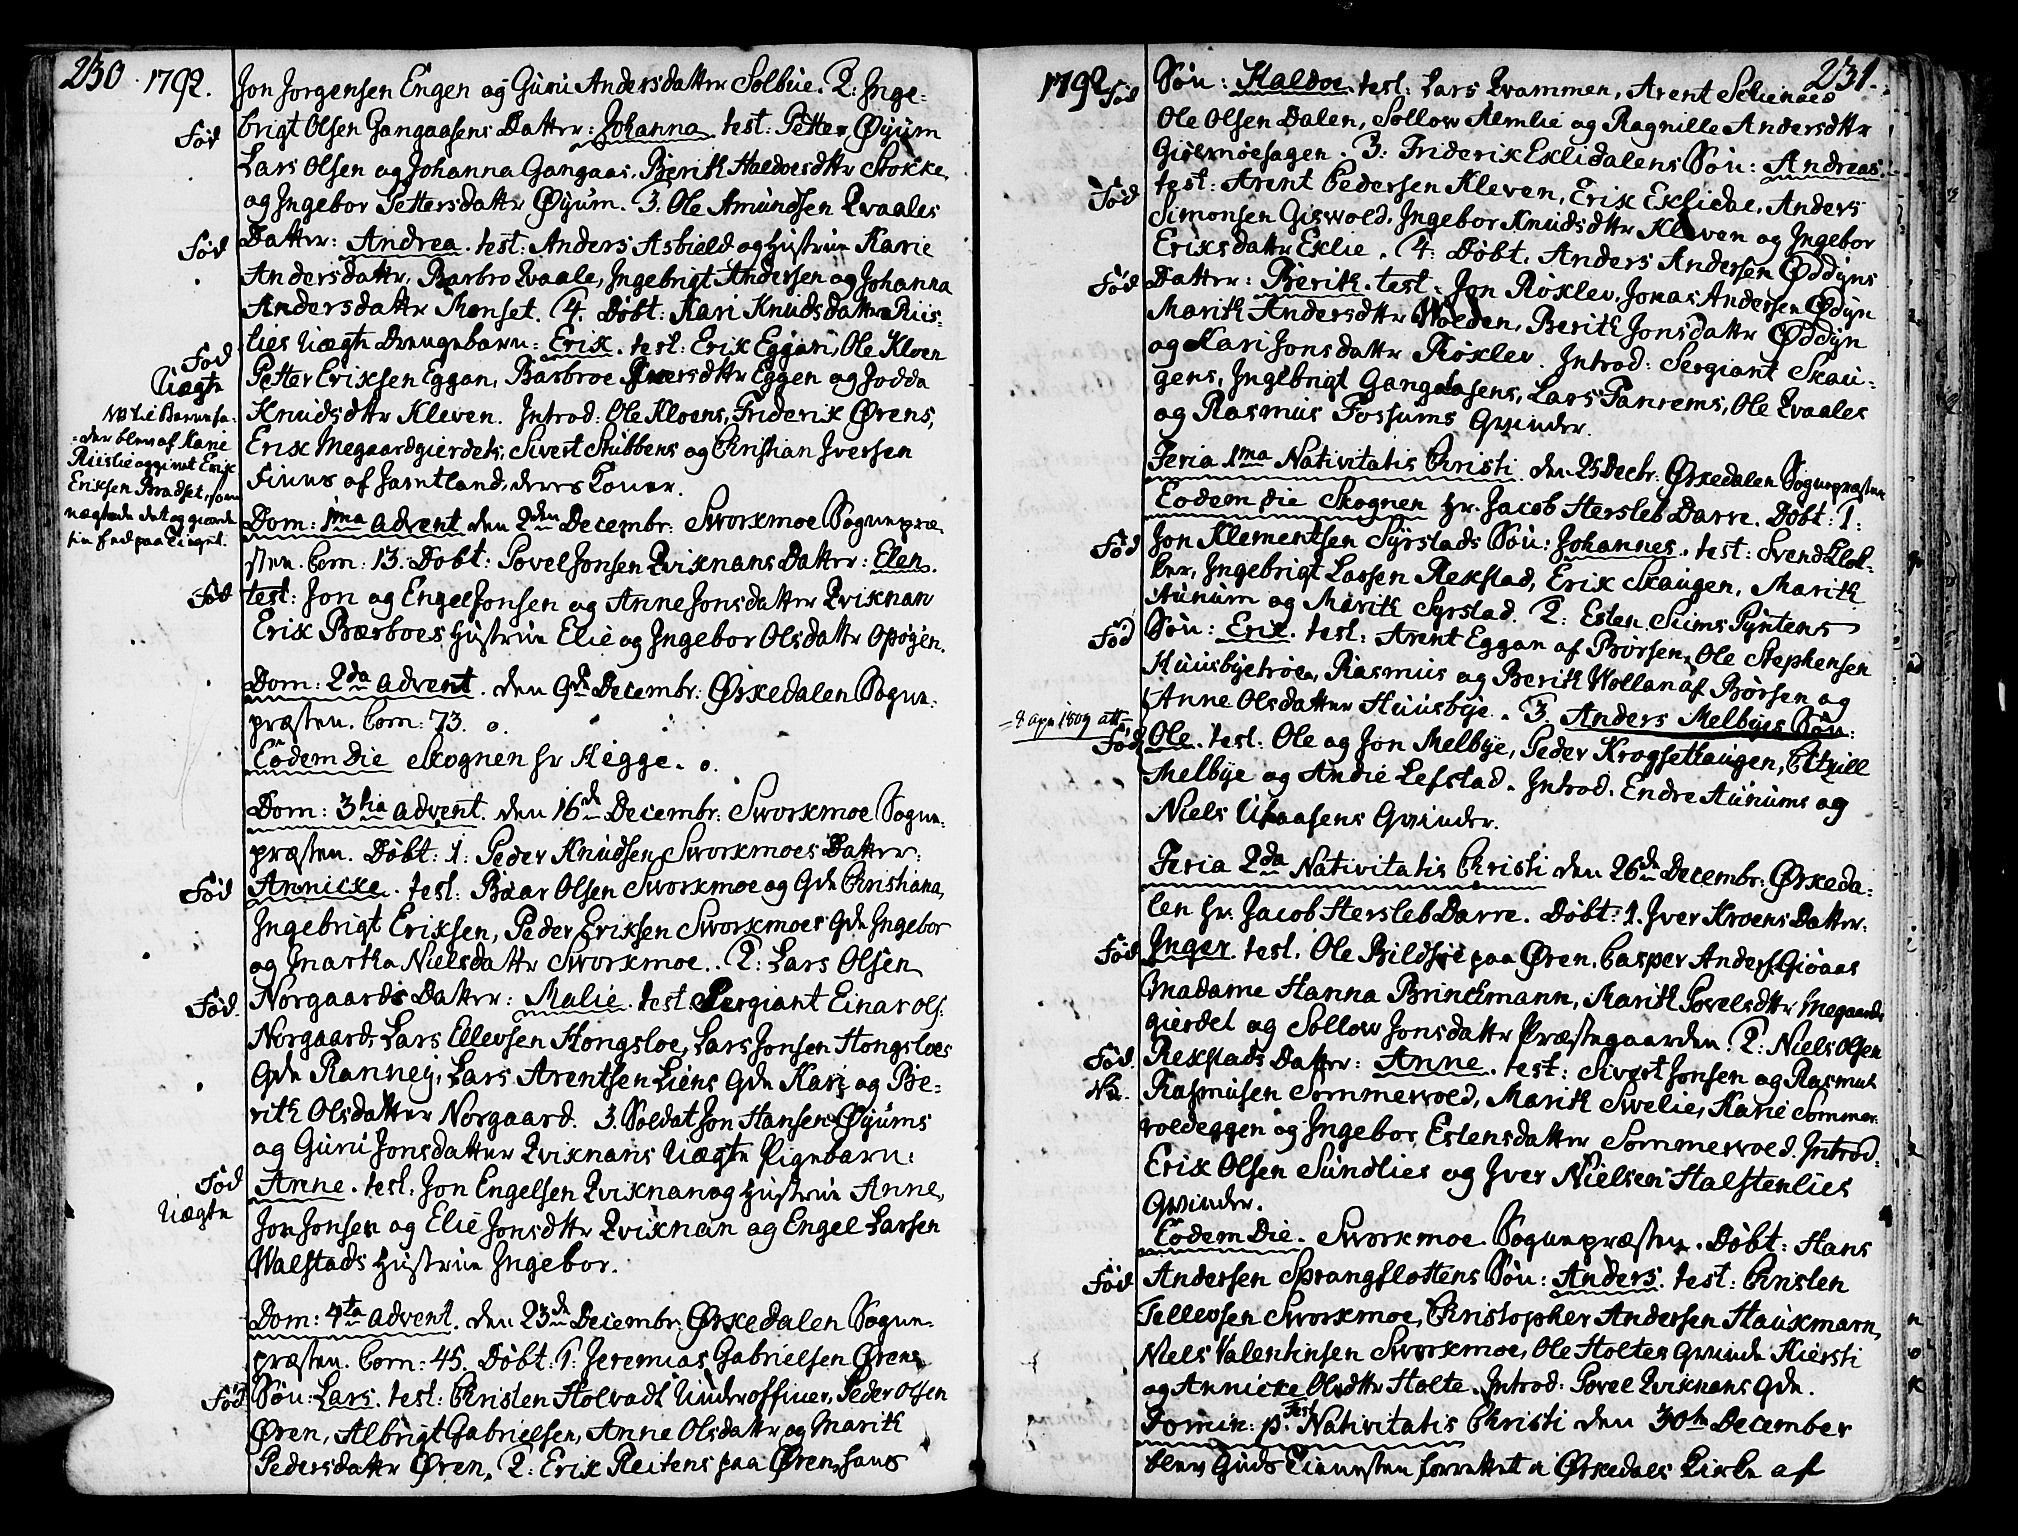 230 1792.
Jon Jorgensen Engen og Guru Andersdatter Solbue. 2: Inge-
Fød brigt Olsen Gangaasens Datter: Johanna. test: Petter Øyum
Lars Olsen og Johanna Gangaas, Berith Haldoesdttr Stokke
og Ingebor Pettersdattr Øyum. 3. Ole Amundsen Qvaales
Fød Datter: Andrea. test: Anders Asbield og Hustrue Karie
Andersdattr, Barbro Qvaale, Ingebrigt Andersen og Johanna
Andersdattr Monset. 4. Døbt: Kari Knudsdattr Riis-
Fød Uægte lies Uægte Drengebarn: Erik. test: Erik Eggan, Ole Kloen
Petter Eriksen Eggan, Barbroe Iversdttr Eggen og Jodda
Knudsdttr Kleven. Introd: Ole Kloens, Friderik Ørens,
Erik Megaardgierdets, Sivert Stubbens og Christian Iversen
Finns af Jamtland, deres Koner.
NB til Barnefa-
der blev af Karie
Riislie opgivet Erik
Eriksen Bradset, som
nægtede det og giorde
sin Eed paa Tinget.
Dom: 1ma Advent den 2den Decembr: Sworkmoe Sognepræ-
sten. Com: 13. Døbt: Povel Jonsen Qviknans Datter: Elen.
Fød test: Jon og Engel Jonsen og Anne Jonsdatter Qviknan
Erik Bærboes Hustrue Elie og Ingebor Olsdattr Opøyen.
Dom: 2da Advent. den 9de Decembr: Ørkedalen Sogne-
præsten. Com: 73.
Eodem Die Skognen hr Hegge.
Dom: 3tia Advent. den 16de Decembr: Sworkmoe Sogne-
præsten. Døbt: 1: Peder Knudsen Sworkmoes Datter:
Fød Annicke. test: Baar Olsen Sworkmoe og Qde Christiana,
Ingebrigt Eriksen, Peder Eriksen Sworkmoes Qde Ingebor
og Martha Nielsdattr Sworkmoe. 2: Lars Olsen
Fød. Norgaards Datter: Malie. test: Sergiant Einar Ols.
Norgaard, Lars Ellevsen Hongsloe, Lars Jonsen Hongsloes
Qde Ranney, Lars Arentsen Liens Qde Kari og Be-
rith Olsdatter Norgaard. 3. Soldat Jon Hansen Øyums
og Guru Jonsdatter Qviknans Uægte Pigebarn:
Fød Uægte Anne. test: Jon Engelsen Qviknan og Hustrue Anne,
Jon Jonsen og Elie Jonsdttr Qviknan og Engel Larsen
Walstads Hustrue Ingebor.
Dom: 4ta Advent. den 23de Decembr: Ørkedalen Sogne-
præsten. Com: 45. Døbt: 1. Jeremias Gabrielsen Ørens
Fød Søn: Lars. test: Christen Holvadt Underofficer, Peder Olsen
Øren, Albrigt Gabrielsen, Anne Olsdattr og Marith
Pedersdattr Øren. 2: Erik Reitens paa Øren, hans
1792 231.
Fød Søn: Haldoe. test: Lars Qvammen, Arent Schienaes
Ole Olsen Dalen, Sollow Almlie og Ragnille Andersdttr
Gislmoesagen. 3: Friderik Eklidalens Søn: Andreas.
Fød test: Arent Pedersen Kleven, Erik Eklidal, Anders
Simonsen Giswold, Ingebor Knudsdttr Kleven og Ingebor
Eriksdattr Eklie. 4: Døbt. Anders Andersen Øddyns
Fød Datter: Berith. test: Jon Røxlev, Jonas Andersen Ødyn
Marith Andersdttr Wolden, Berith Jonsdattr Øddyn
og Kari Jonsdattr Røxlev. Introd: Sergiant Skau-
gens, Ingebrigt Gangaasens, Lars Fanrems, Ole Qvaales
og Rasmus Fossums Qvinder.
Feria 1ma Nativitatis Christi. den 25 Decbr: Ørkedalen Sognepræsten
Eodem Die Skognen hr. Jacob Hersleb Darre. Døbt: 1:
Fød Jon Klementsen Syrstads Søn: Johannes. test: Svend Klok-
ker, Ingebrigt Larsen Rekstad, Erik Skaugen, Marith
Aunum og Marith Syrstad. 2: Esten Suims Pyntens
Fød Søn: Erik. test: Arent Eggan af Børsen, Ole Stephensen
Huusbyetrøe, Rasmus og Berith Wollan af Børsen og
Anne Olsdatter Huusbye. 3. Anders Melbyes Søn:
= 8 apr 1809 att
Fød Ole. test: Ole og Jon Melbye, Peder Krogsethaugen, Kitzill
Melbye og Andie Lefstad. Introd. Endre Aunums og
Niels Ufaasens Qvinder.
Feria 2da Nativitatis Christi den 26de Decembr: Ørkeda-
len hr. Jacob Hersleb Darre. Døbt: 1. Iver Kroens Datter:
Fød Inger. test. Ole Bildsøe paa Øren, Casper Anders. Giøaas
Madame Hanna Brinckmann, Marith Povelsdttr Megaards
gierdet og Sollow Jonsdattr Præstegaarden. 2: Niels Olsen
Fød. Rekstads Datter: Anne. test: Sivert Jonsen og Rasmus
NB. Rasmusen Sommervold, Marith Swelie, Karie Sommer-
voldeggen og Ingebor Estensdatter Sommervold. Introd:
Erik Olsen Sundlies og Iver Nielsen Halstenlies
Qvinder.
Eodem Die. Sworkmoe Sognepræsten. Døbt: Hans
Fød Andersen Sprangflottens Søn: Anders. test: Christen
Tellevsen Sworkmoe, Christopher Andersen Haukmarn,
Niels Valentinsen Sworkmoe, Ole Holtes Qvinde Kiersti
og Annicke Olsdttr Holte. Introd: Povel Qviknans Qde.
Domin: p. Fest Nativitatis Christi den 30te December
blev Guds Tieneste forrettet i Ørkedals Kirke af